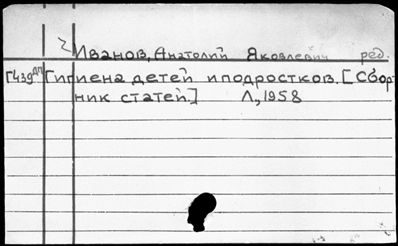 Иванов, Анатолий Яковлевич ред.
Г439дп Гигиена детей и подростков. [Сбор-
ник статей.] Л, 1958